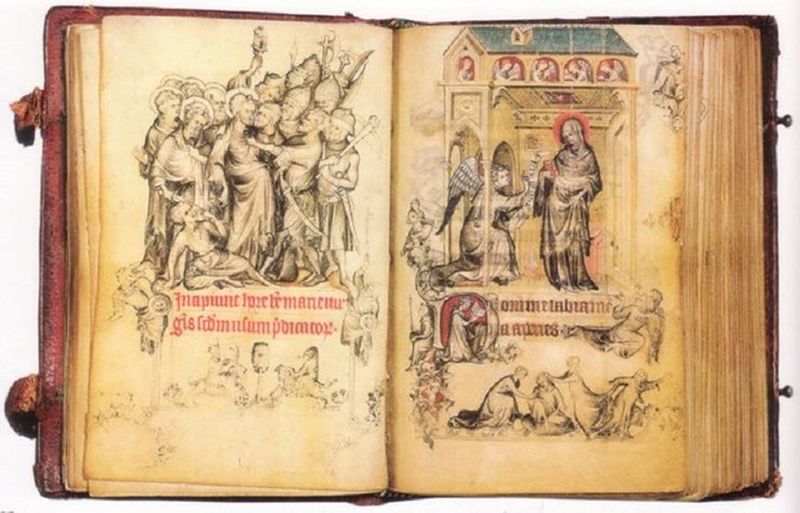 Incipiunt hore bte marie uir
gis scdm usum pdicator.
Domine labia me
a apies